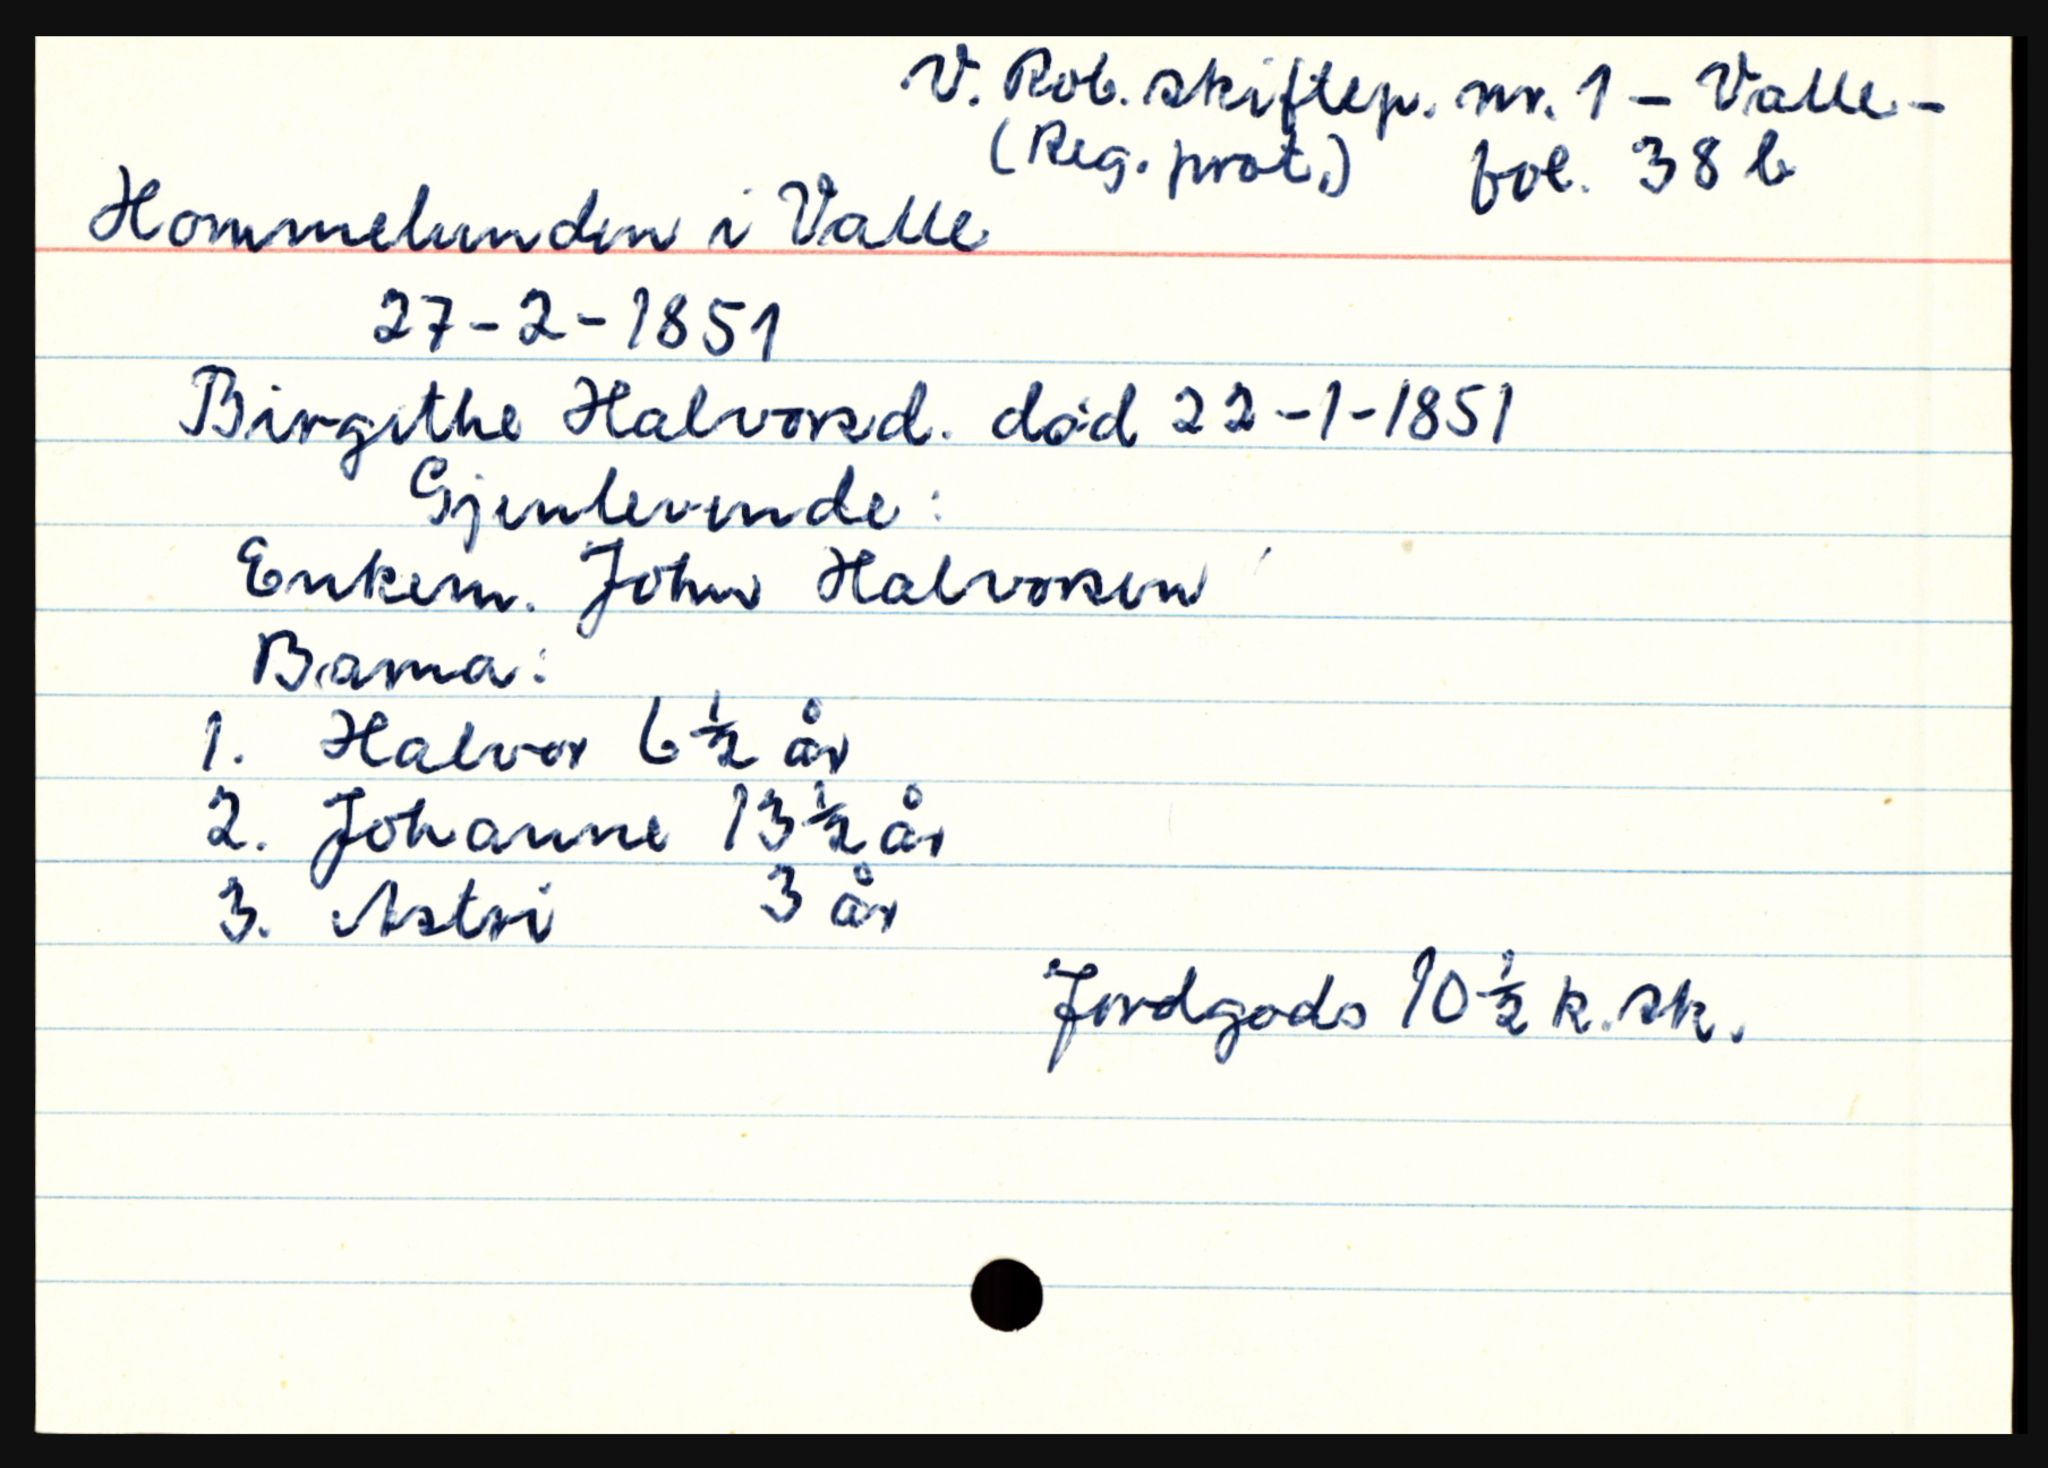 V. Rob. skiftep. nr. 1 - Valle -
(Reg. prot.) fol. 38 b
Hommelunden i Valle
27-2-1851
Birgithe Halvorsd. død 22-1-1851
Gjenlevende:
Enkem. John Halvorsen
Barna:
1. Halvor 6 1/2 år
2. Johanne 13 1/2 år
3. Astri 3 år
Jordgods 10 1/2 k. sk.